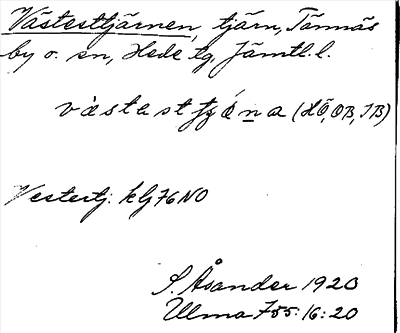 Västesttjärnen, tjärn, Tännäs
by o. sn, Hede tg, Jämtl. l.
västesttjæ̀na (HÖ, OB, JB)
Vestertj. kbj 76 NO
S. Åsander 1920
Ulma 755:16:20